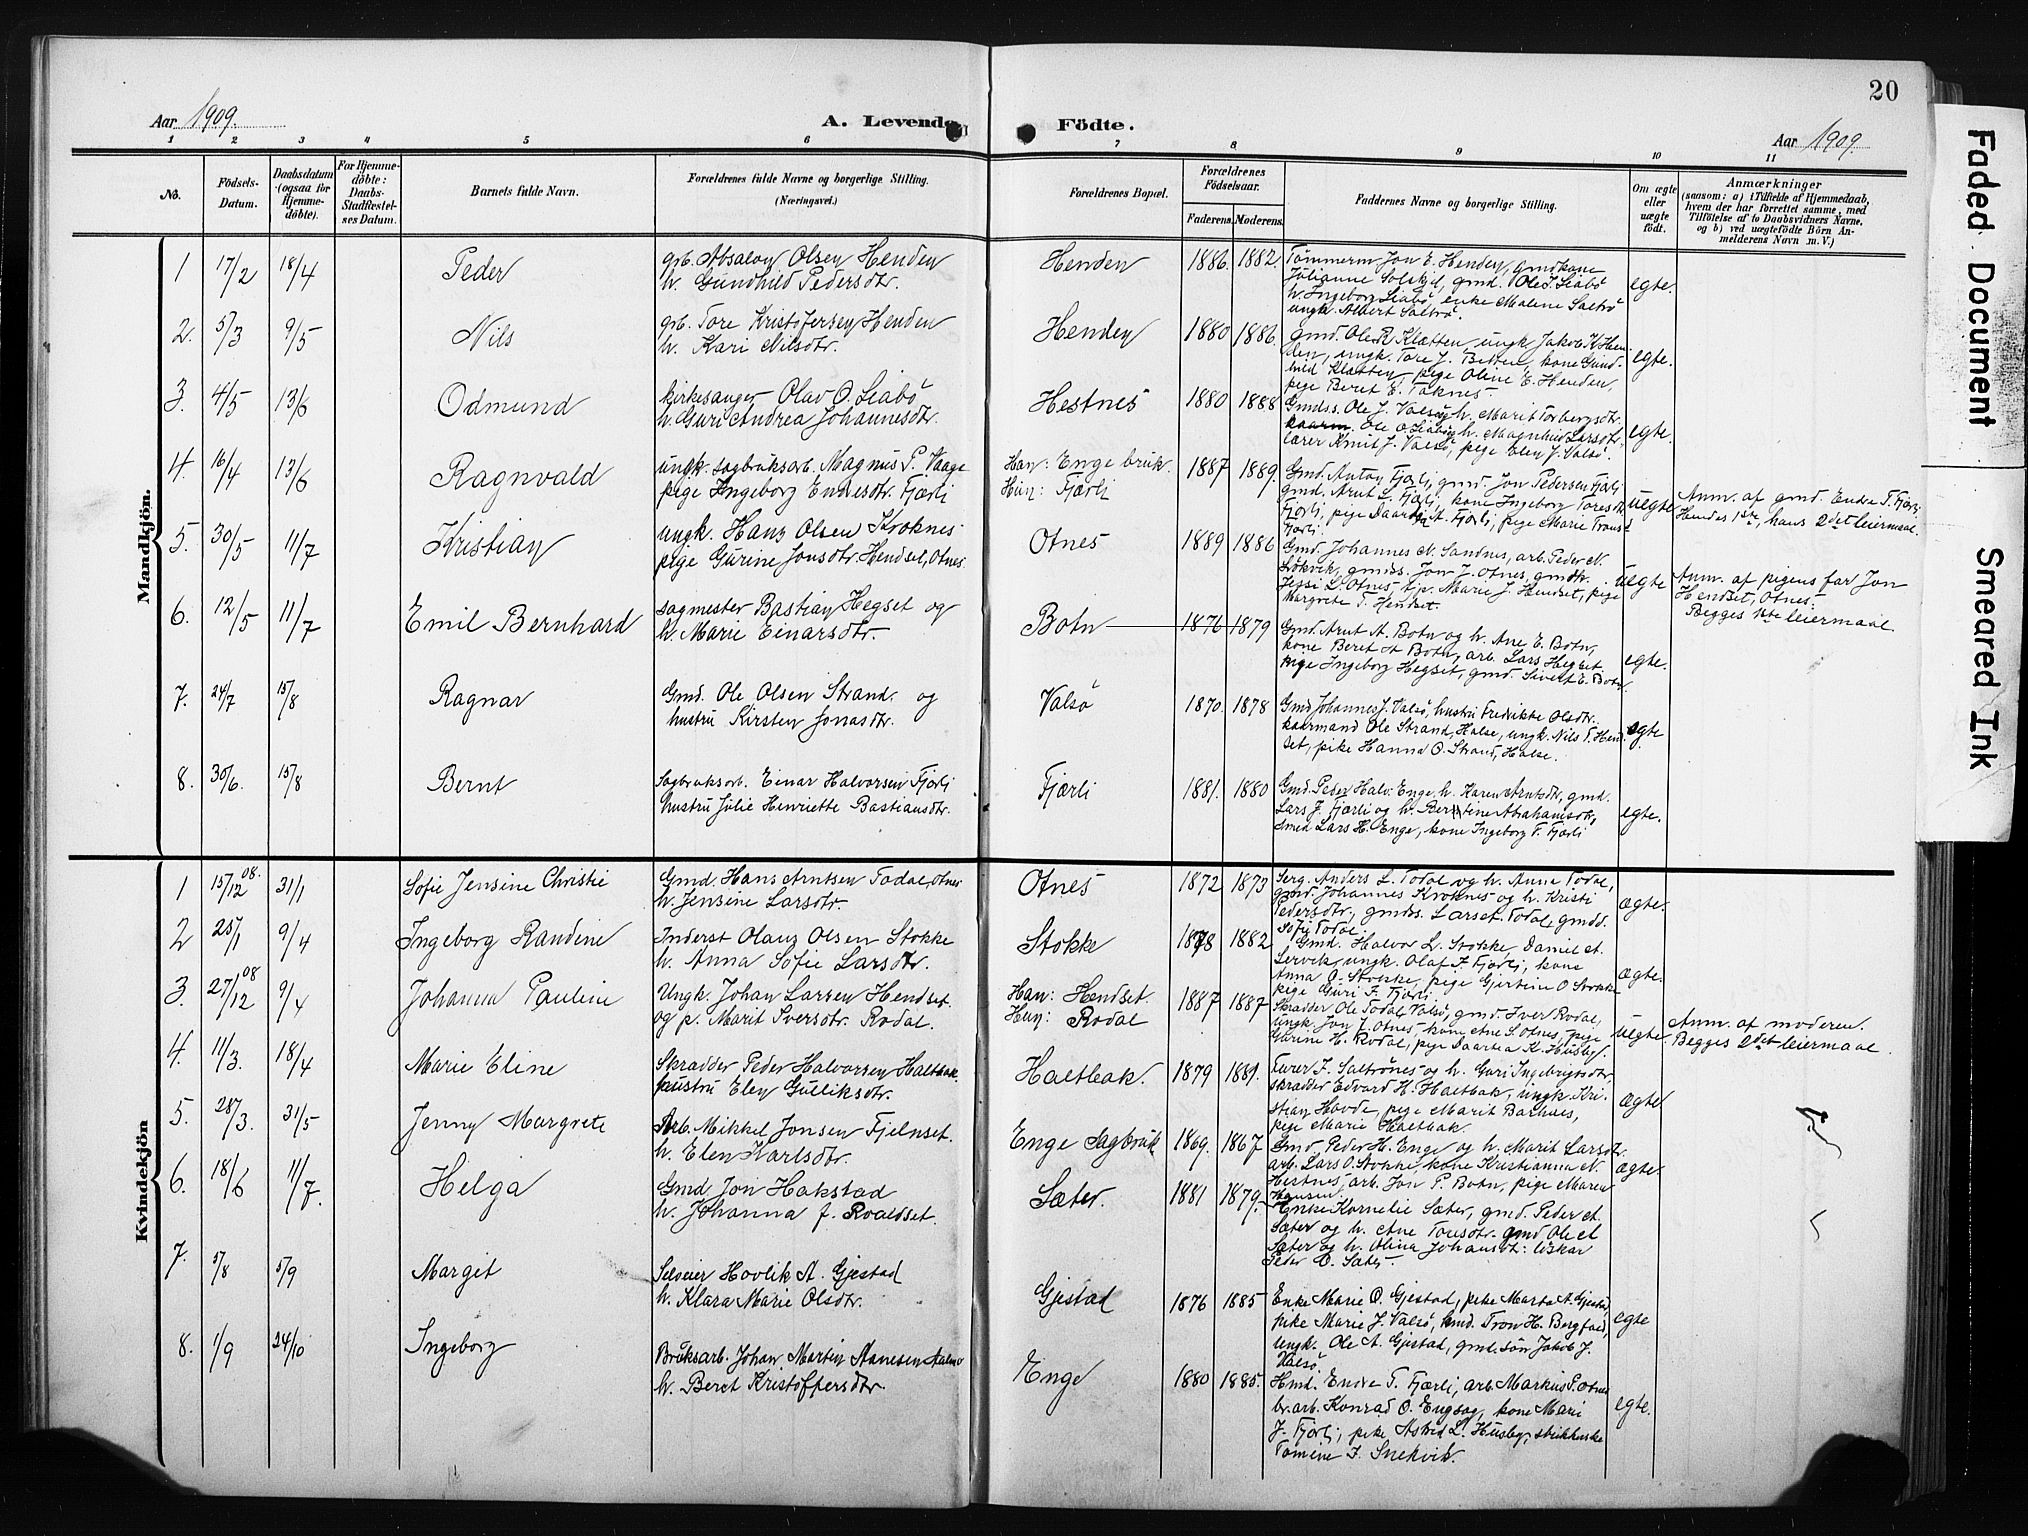 20
Aar 1909.
A. Levende Födte.
Aar 1909.
1 2 3 4 5 6 7 8 9 10 11
No.
Födsels-Datum.
Daabsdatum (ogsaa for Hjemmedöbte).
For Hjemmedöbte: Daabs-Stadfæstelses Datum.
Barnets fulde Navn.
Forældrenes fulde Navne og borgerlige Stilling. (Næringsvei.)
Forældrenes Bopæl.
Forældrenes Födselsaar.
Faderens. Moderens.
Faddernes Navne og borgerlige Stilling.
Om ægte eller uægte födt.
Anmærkninger
(saasom: a) i Tilfælde af Hjemmedaab,
hvem der har forrettet samme, med
Tilföielse af to Daabsvidners Navne,
og b) ved uægtefödte Börn Anmelderens Navn m. V.)
Mandkjön.
1 17/2 18/4 Peder
grb. Absalon Olsen Henden
h. Gundhild Pedersdtr.
Henden 1886. 1882.
Tömmerm. Jon E. Henden, gmdkone
Julianne Solskjel, gmd. Ole J. Liabö
h. Ingeborg Liabö, enke Malene Saltrö
ungk. Albert Saltrö.
egte.
2. 5/3 9/5 Nils
grb. Tore Kristofersen Henden
h. Kari Nilsdtr.
Henden 1880 1886.
gmd. Ole R. Kletten, ungk. Jakob K. Henden,
ungk. Tore J. Betten, kone Gundhild
Kletten, pige Oline E. Henden,
pige Beret E. Taknes.
egte.
3. 4/5 13/6 Odmund
kirkesanger Olav O. Liabö
h. Guri Andrea Johannesdtr.
Hestnes 1880 1888
Gmds. Ole J. Valsö, h. Marit Torbergsdtr.
kaarm. Ole O. Liabö, h. Magnhild Larsdtr.
lærer Knut J. Valsö, pige Elen J. Valsö.
egte.
4. 16/4 13/6 Ragnvald
ungk. sagbruksarb. Magnus P. Vaage
pige Ingeborg Endresdtr. Fjærli
Han: Enge bruk.
Hun: Fjærli
1887 1889.
Gmd. Anton Fjærli, gmd. Jon Pedersen Fjærli
gmd. Arnt L. Fjærli, kone Ingeborg Toresdtr.
Fjærli, pige Daarthea A. Fjærli, pige Marie
Fjærli.
uegte
Anm. af gmd. Endre T. Fjærli,
Hendes 1ste, hans 2det leiermaal.
5. 30/5 11/7 Kristian
ungk. Hans Olsen Kroknes
pige Gurine Jonsdtr. Hendset, Otnes
Otnes 1889 1886
Gmd. Johannes N. Sandnes, arb. Peder N.
gmds. Jon J. Otnes, gmdtr.
L. Otnes, tjp. Marie J. Hendset, pige
Margrete T. Hendset.
uegte
Anm. af pigens far Jon
Hendset, Otnes.
Begges 1ste leiermaal.
6. 12/5 11/7 Emil Bernhard
sagmester Bastian Hegset og
h. Marie Einarsdtr.
Botn 1876 1879
Gmd. Arnt A. Botn og h. Ane E. Botn,
kone Beret A. Botn, arb. Lars Hegset
pige Ingeborg Hegset, gmd. Sivert E. Botn.
egte.
7. 24/7 15/8 Ragnar
Gmd. Ole Olsen Strand og
hustru Kirsten Jonasdtr.
Valsö 1870. 1878
Gmd Johannes J. Valsö, hustru Fredrikke Olsdtr.
kaarmand Ole Strand, Halse, ungk. Nils T. Hendset,
pike Hanna O. Strand, Halse.
egte
8. 30/6. 15/8 Bernt
Sagbruksarb. Einar Halvorsen Fjærli
hustru Julie Henriette Bastiansdtr.
Fjærli 1881. 1880
Gmd. Peder Halv. Enge, h. Karen Arntsdtr, gmd.
Lars J. Fjærli og h. Berntine Abrahamsdtr,
smed Lars H. Enge, kone Ingeborg T. Fjærli
egte.
Kvindekjön
1 15/12 08. 31/1 Sofie Jensine Christie
Gmd. Hans Arntsen Todal, Otnes
h. Jensine Larsdtr.
Otnes 1872 1873
Serg. Anders L. Todal og h. Anna Todal,
gmd. Johannes Kroknes og h. Kristi
Pedersdtr, gmds. Lars Todal, gmdd.
Sofie Todal.
ægte.
2 25/1 9/4 Ingeborg Randine
Inderst Olaus Olsen Stokke
h. Anna Sofie Larsdtr.
Stokke 1878 1882
Gmd. Halvor L. Stokke, Daniel A.
Lervik, ungk. Olaf F. Fjærli, kone
Anna O. Stokke, pige Gjertine O. Stokke
pige Guri F. Fjærli.
ægte.
3. 27/12 08 9/4 Johanna Pauline
Ungk. Johan Larsen Hendset
og p. Marit Iversdtr. Rodal.
Han: Hendset.
Hun: Rodal
1887 1887
Skrædder Ole Todal, Valsö, gmd. Iver Rodal,
ungk. Jon J. Otnes, kone Ane S. Otnes, pige
Gurine H. Rodal, pige Daartea K. Husby.
uegte.
Anm. af moderen.
Begges 2det leiermaal.
4. 11/3. 18/4 Marie Eline
Skrædder Peder Halvorsen Haltbak.
hustru Elen Gulliksdtr.
Haltbak. 1879 1881.
Furer F. Saltrönes og h. Guri Ingebrigtsdtr.
skrædder Edvard H. Haltbak, ungk. Kristian
Hovde, pige Marit Baknes,
pige Marie Haltbak.
ægte
5. 28/3. 31/5 Jenny Margrete
Arb. Mikkel Jonsen Fjelnset.
h. Elen Karlsdtr.
Enge Sagbruk 1869. 1867
Gmd. Peder H. Enge og h. Marit Larsdtr.
arb. Lars O. Stokke, kone Kristianna N.
Hestnes, arb. Jon P. Botn, pige Maren
Hansen.
ægte.
6. 18/6 11/7. Helga
Gmd. Jon Hakstad
h. Johanna f. Roaldset.
Sæter. 1881 1879.
Enke Kornelie Sæter, gmd. Peder A.
Sæter og h. Ane Tonsdtr. gmd Ole A.
Sæter og h. Olina Johansdt:
Peder O. Sæter.
7. 5/8 5/9 Margit
Selveier Hovlik A. Gjestad
h. Klara Marie Olsdtr.
Gjestad 1876 1885
Enke Marie O. Gjestad, pike Marta A. Gjestad,
pike Marie J. Valsö, kmd. Tron H. Bergfald,
ungk. Ole A. Gjestad, gmd.sön Jakob J.
Valsö.
egte
8. 1/9 24/10 Ingeborg
Bruksarb. Johan Martin Aanesen Aalmo
h. Beret Kristoffersdtr.
Enge 1880 1885.
Hmd. Endre T. Fjærli, arb. Markus P. Otnes
br.arb. Konrad O. Engsag, kone Mari
J. Fjærli, pike Astrid L. Husby,
Tomine I. Snekvik.
egte.
Faded Document
Smeared Ink